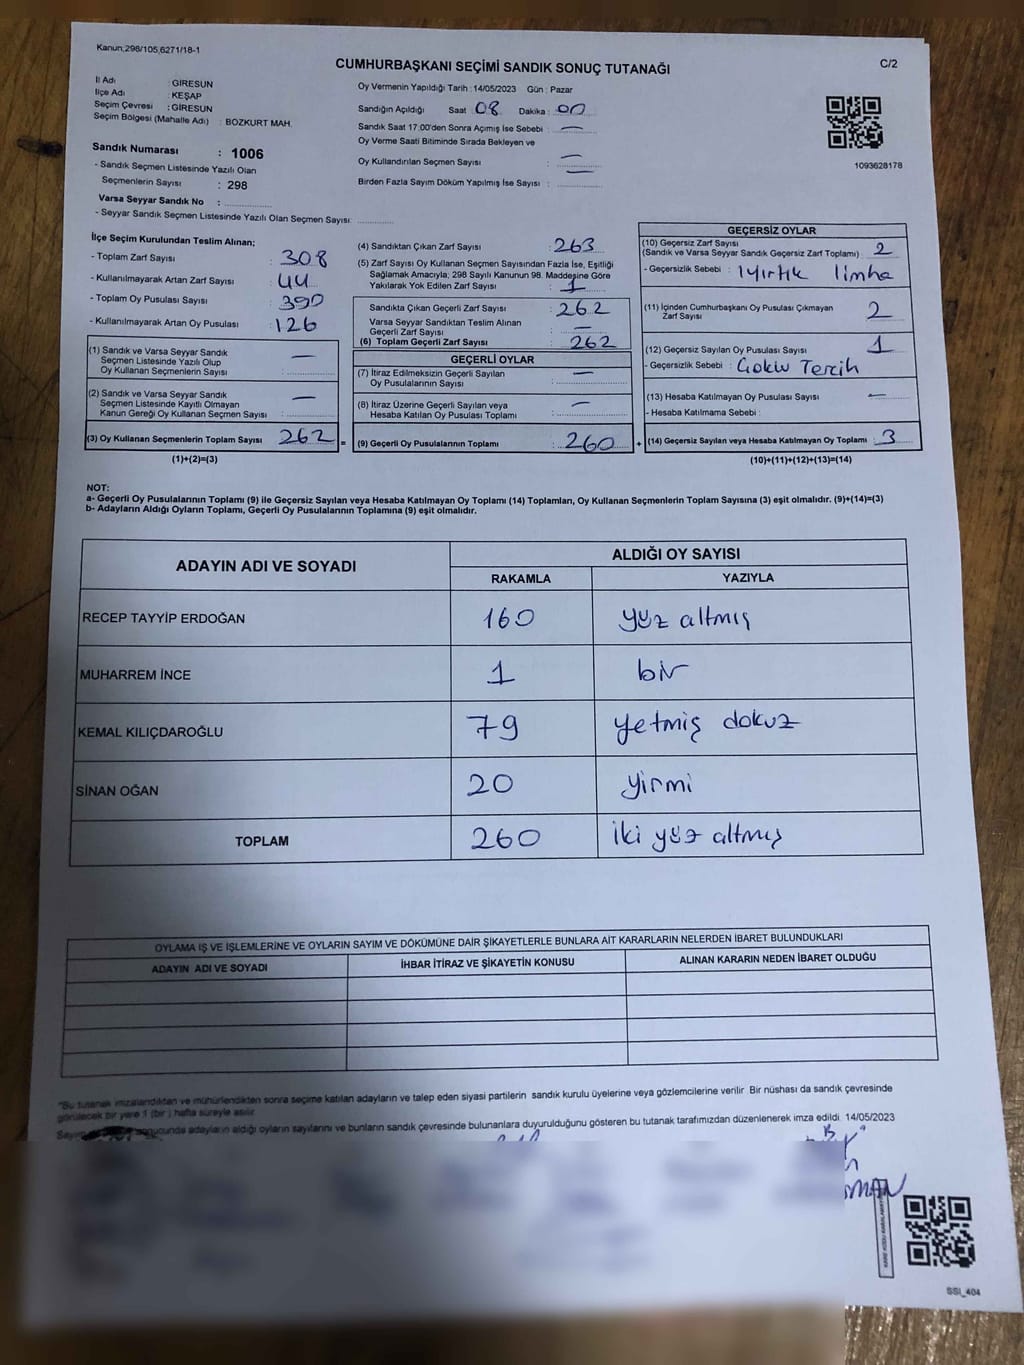 Kanun,298/105,6271/18-1
C/2
CUMHURBAŞKANI SEÇİMİ SANDIK SONUÇ TUTANAĞI
İl Adı : GİRESUN
İlçe Adı : KEŞAP
Seçim Çevresi : GİRESUN
Seçim Bölgesi (Mahalle Adı) : BOZKURT MAH.
Sandık Numarası : 1006
- Sandık Seçmen Listesinde Yazılı Olan
Seçmenlerin Sayısı : 298
Varsa Seyyar Sandık No :
- Seyyar Sandık Seçmen Listesinde Yazılı Olan Seçmen Sayısı:
Oy Vermenin Yapıldığı Tarih : 14/05/2023 Gün : Pazar
Sandığın Açıldığı Saat : 08 Dakika : 00
Sandık Saat 17:00'den Sonra Açımış İse Sebebi : —
Oy Verme Saati Bitiminde Sırada Bekleyen ve
Oy Kullandırılan Seçmen Sayısı : —
Birden Fazla Sayım Döküm Yapılmış İse Sayısı : —
1093628178
İlçe Seçim Kurulundan Teslim Alınan;
- Toplam Zarf Sayısı : 308
- Kullanılmayarak Artan Zarf Sayısı : 44
- Toplam Oy Pusulası Sayısı : 390
- Kullanılmayarak Artan Oy Pusulası : 126
(1) Sandık ve Varsa Seyyar Sandık
Seçmen Listesinde Yazılı Olup
Oy Kullanan Seçmenlerin Sayısı : —
(2) Sandık ve Varsa Seyyar Sandık
Seçmen Listesinde Kayıtlı Olmayan
Kanun Gereği Oy Kullanan Seçmen Sayısı : —
(3) Oy Kullanan Seçmenlerin Toplam Sayısı : 262 =
(1)+(2)=(3)
(4) Sandıktan Çıkan Zarf Sayısı : 263
(5) Zarf Sayısı Oy Kullanan Seçmen Sayısından Fazla İse, Eşitliği
Sağlamak Amacıyla, 298 Sayılı Kanunun 98. Maddesine Göre
Yakılarak Yok Edilen Zarf Sayısı : 1
Sandıkta Çıkan Geçerli Zarf Sayısı : 262
Varsa Seyyar Sandıktan Teslim Alınan
Geçerli Zarf Sayısı : —
(6) Toplam Geçerli Zarf Sayısı : 262
GEÇERLİ OYLAR
(7) İtiraz Edilmeksizin Geçerli Sayılan
Oy Pusulalarının Sayısı : —
(8) İtiraz Üzerine Geçerli Sayılan veya
Hesaba Katılan Oy Pusulası Toplamı : —
(9) Geçerli Oy Pusulalarının Toplamı : 260 +
GEÇERSİZ OYLAR
(10) Geçersiz Zarf Sayısı
(Sandık ve Varsa Seyyar Sandık Geçersiz Zarf Toplamı) : 2
- Geçersizlik Sebebi : 1 yırtık
(11) İçinden Cumhurbaşkanı Oy Pusulası Çıkmayan
Zarf Sayısı : 2
(12) Geçersiz Sayılan Oy Pusulası Sayısı : 1
- Geçersizlik Sebebi : Tercih
(13) Hesaba Katılmayan Oy Pusulası Sayısı : —
- Hesaba Katılmama Sebebi :
(14) Geçersiz Sayılan veya Hesaba Katılmayan Oy Toplamı : 3
(10)+(11)+(12)+(13)=(14)
NOT:
a- Geçerli Oy Pusulalarının Toplamı (9) ile Geçersiz Sayılan veya Hesaba Katılmayan Oy Toplamı (14) Toplamları, Oy Kullanan Seçmenlerin Toplam Sayısına (3) eşit olmalıdır. (9)+(14)=(3)
b- Adayların Aldığı Oyların Toplamı, Geçerli Oy Pusulalarının Toplamına (9) eşit olmalıdır.
ADAYIN ADI VE SOYADI ALDIĞI OY SAYISI
RAKAMLA YAZIYLA
RECEP TAYYİP ERDOĞAN 160 yüz altmış
MUHARREM İNCE 1 bir
KEMAL KILIÇDAROĞLU 79 yetmiş dokuz
SİNAN OĞAN 20 yirmi
TOPLAM 260 iki yüz altmış
OYLAMA İŞ VE İŞLEMLERİNE VE OYLARIN SAYIM VE DÖKÜMÜNE DAİR ŞİKAYETLERLE BUNLARA AİT KARARLARIN NELERDEN İBARET BULUNDUKLARI
ADAYIN ADI VE SOYADI İHBAR İTİRAZ VE ŞİKAYETİN KONUSU ALINAN KARARIN NEDEN İBARET OLDUĞU
"Bu tutanak imzalandıktan ve mühürlendikten sonra seçime katılan adayların ve talep eden siyasi partilerin sandık kurulu üyelerine veya gözlemcilerine verilir Bir nüshası da sandık çevresinde
görülecek bir yere 1 (bir ) hafta süreyle asılır
Sayım sonucunda adayların aldığı oyların sayılarını ve bunların sandık çevresinde bulunanlara duyurulduğunu gösteren bu tutanak tarafımızdan düzenlenerek imza edildi. 14/05/2023
SSI_404